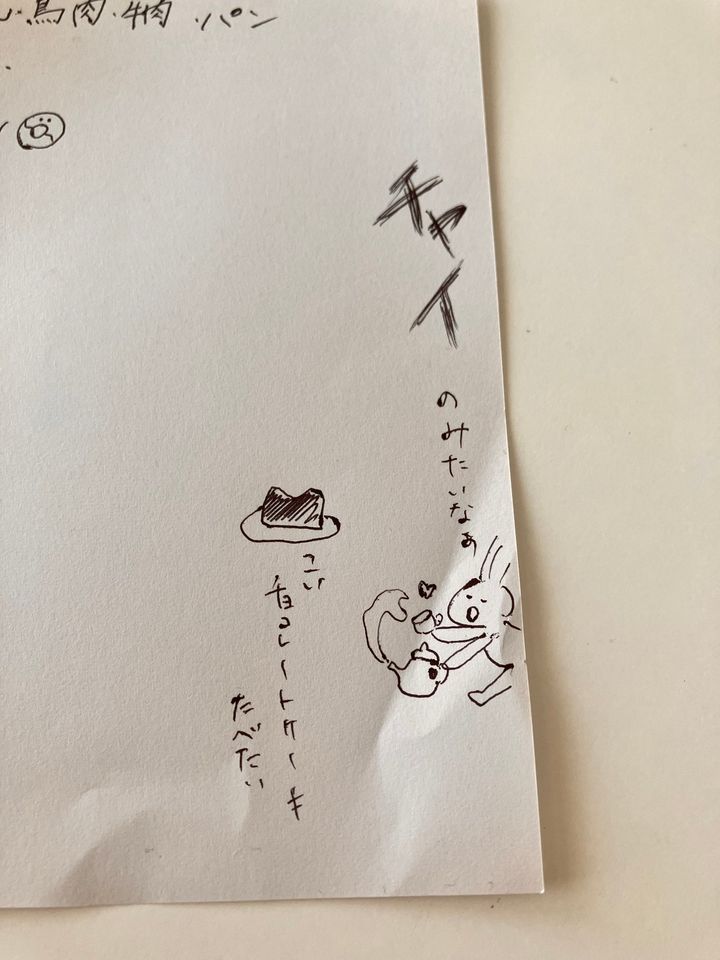 鳥肉・牛肉 ・パン
チャイ
のみたいなぁ
こい
チョコレートケーキ
たべたい